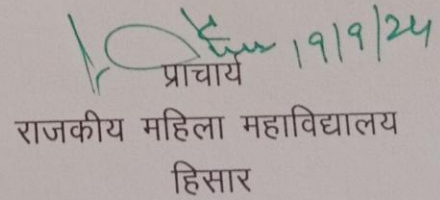 19/9/24
प्राचार्य
राजकीय महिला महाविद्यालय
हिसार